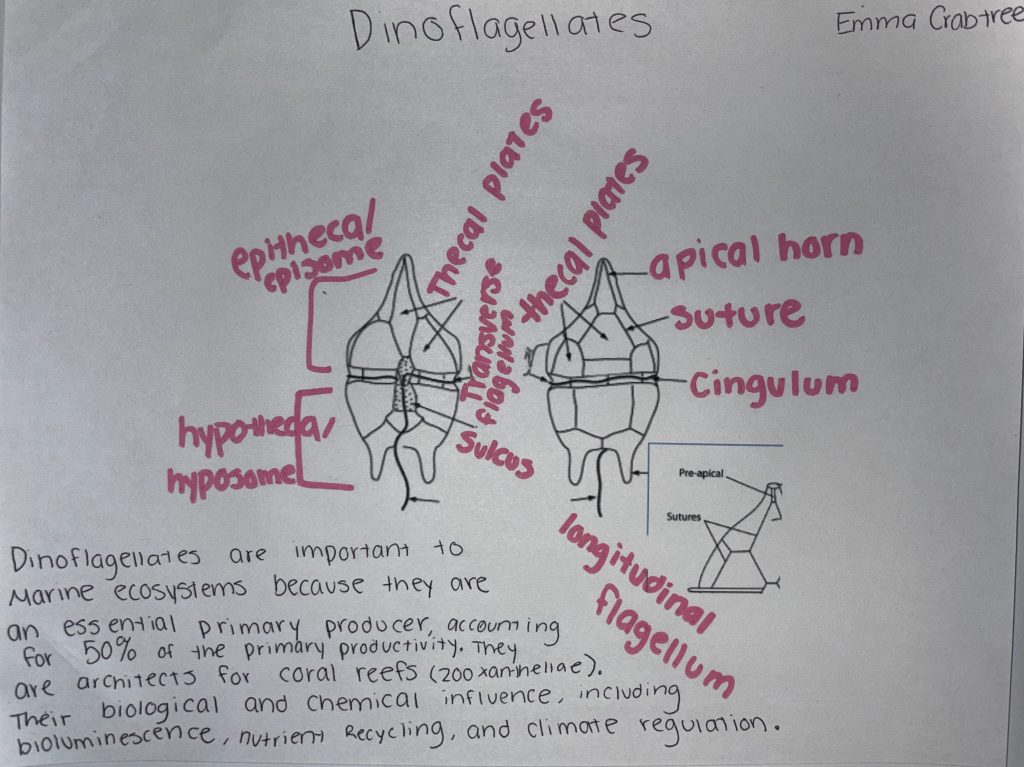 Dinoflagellates
Emma Crabtree
Thecal plates
thecal plates
epitheca/
episome
apical horn
Transverse
flagellum
Suture
Cingulum
hypotheca/
hyposome
Sulcus
Pre-apical
Sutures
longitudinal
flagellum
Dinoflagellates are important to
Marine ecosystems because they are
an essential primary producer, accounting
for 50% of the primary productivity. They
are architects for coral reefs (zooxantheliae).
Their biological and chemical influence, including
bioluminescence, nutrient Recycling, and climate regulation.